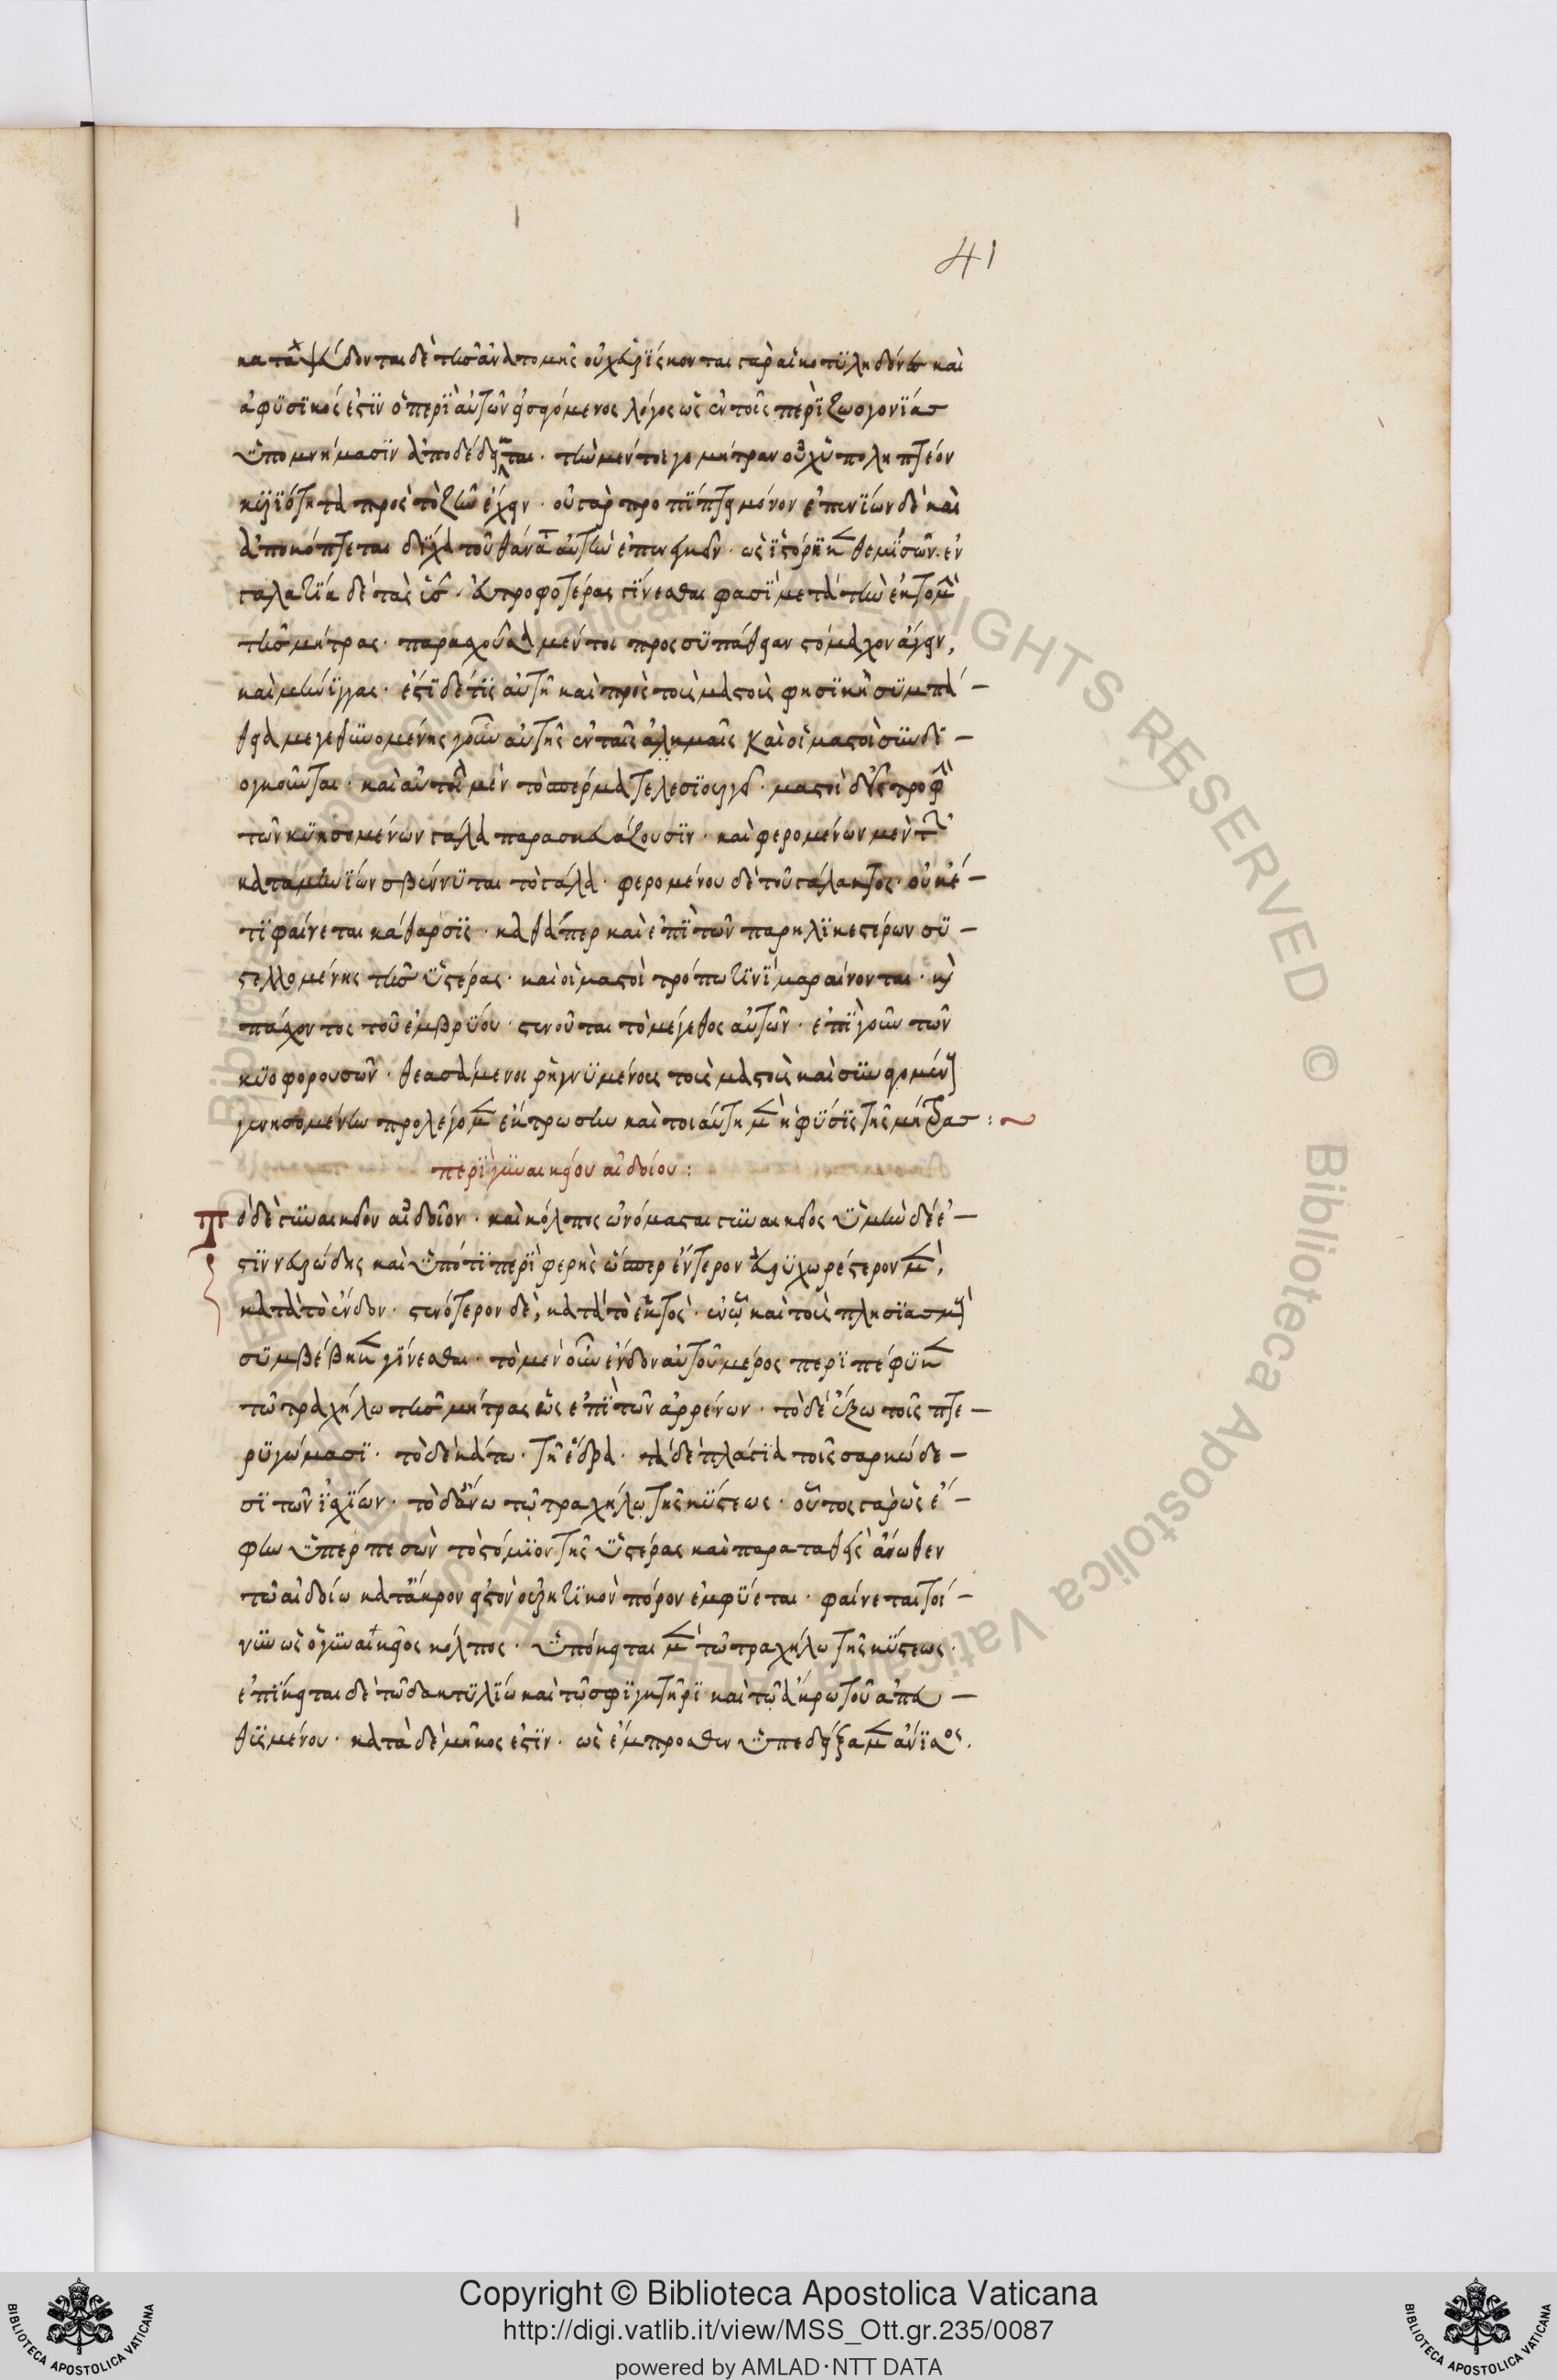 41
καταψεύδονται δὲ τῆς ἀνατομῆς οὐχ εὑρίσκονται γὰρ αἱ κοτυληδόνες καὶ
ἀφυσικός ἐστιν ὁ περὶ αὐτῶν εἰσφερόμενος λόγος ὡς ἐν τοῖς περὶ ζωογονίας
ὑπομνήμασιν ἀποδέδεικται · τὴν μέντοι γε μήτραν οὐχ ὑποληπτέον
κυριότητα πρὸς τὸ ζῆν ἔχειν · οὐ γὰρ προπίπτει μόνον ἐπ' ἐνίων δὲ καὶ
ἀποκόπτεται δίχα τοῦ θάνατον αὐτὴν ἐπενεγκεῖν · ὡς ἱστόρηκε θεμίσων · ἐν
γαλατία δὲ τὰς ὗς · εὐτροφοτέρας γίνεσθαι φασὶ μετὰ τὴν ἐκτομὴν
τῆς μήτρας · μέντοι πρὸς συπάθειαν στόμαχον ἄγειν,
καὶ μήνιγγας · ἔστι δέ τις αὐτῆ καὶ πρὸς τοὺς μαστοὺς φυσικὴ συμπά–
θεια μεγεθυνομένης γοῦν αὐτῆς ἐν ταῖς ἀκμαῖς καὶ οἱ μαστοὶ συνδι–
ογκοῦνται · καὶ αὐτὴ μὲν τὸ σπέρμα τελεσιουργεῖ · μαστοὶ δ' εἰς τροφὴν
τῶν κυησομένων γάλα παρασκευάζουσιν · καὶ φερομένων μὲν τῶν
καταμηνίων σβέννυται τὸ γάλα · φερομένου δὲ τοῦ γάλακτος · οὐκέ–
τι φαίνεται κάθαρσις · καθάπερ καὶ ἐπὶ τῶν παρηλικεστέρων συ–
στελλομένης τῆς ὑστέρας · καὶ οἱ μαστοὶ τρόπω τινὶ μαραίνονται · καὶ
πάσχοντος τοῦ ἐμβρύου · στενοῦται τὸ μέγεθος αὐτῶν · ἐπὶ γοῦν τῶν
κυοφορουσῶν · θεασάμενοι ῥηγνυμένους τοὺς μαστοὺς καὶ
γενησομένην προλέγομεν ἔκτρωσιν καὶ τοιαύτη μὲν ἡ φύσις τῆς μήτρας :~
περὶ γυναικείου αἰδοίου :
Τὸ δὲ γυναικεῖον αἰδοῖον · καὶ κόλπος ὠνόμασται γυναικεῖος ὑμὴν δέ ἐ–
στιν νευρώδης καὶ ὑπό τι περιφερὴς ὥσπερ ἔντερον εὐρυχωρέστερον μὲν,
κατὰ τὸ ἔνδον · στενότερον δὲ, κατὰ τὸ ἐκτὸς · ἐν ᾧ καὶ τοὺς πλησιασμοὺς
συμβέβηκε γίνεσθαι · τὸ μὲν οὖν ἔνδον αὐτοῦ μέρος περιπέφυκε
τῶ τραχήλω τῆς μήτρας ὡς ἐπὶ τῶν ἀρρένων · τὸ δὲ ἔξω τοῖς πτε–
ρυγώμασι · τὸ δὲ κάτω · τῆ ἕδρα · τὰ δὲ πλάγια τοῖς σαρκώδε–
σι τῶν ἰσχίων · τὸ δ' ἄνω τῷ τραχήλῳ τῆς κύστεως · οὗτος γὰρ ὡς ἔ–
φην ὑπερπεσὼν τὸ στόμιον τῆς ὑστέρας καὶ παραταθεὶς ἄνωθεν
τῶ αἰδοίω κατ' ἄκρον εἰς τὸν οὐρητικὸν πόρον ἐμφύεται · φαίνεται τοί–
νυν ὡς ὁ γυναικεῖος κόλπος · ὑπόκειται μὲν τῶ τραχήλω τῆς κύστεως ·
ἐπίκειται δὲ τῶ δακτυλίω καὶ τῶ σφιγκτῆρι καὶ τῶ ἄκρω τοῦ ἀπευ–
θυσμένου · κατὰ δὲ μῆκος ἐστὶν · ὡς ἔμπροσθεν ὑπεδείξαμεν ἄνισος.
Copyright © Biblioteca Apostolica Vaticana
http://digi.vatlib.it/view/MSS_Ott.gr.235/0087
powered by AMLAD·NTT DATA